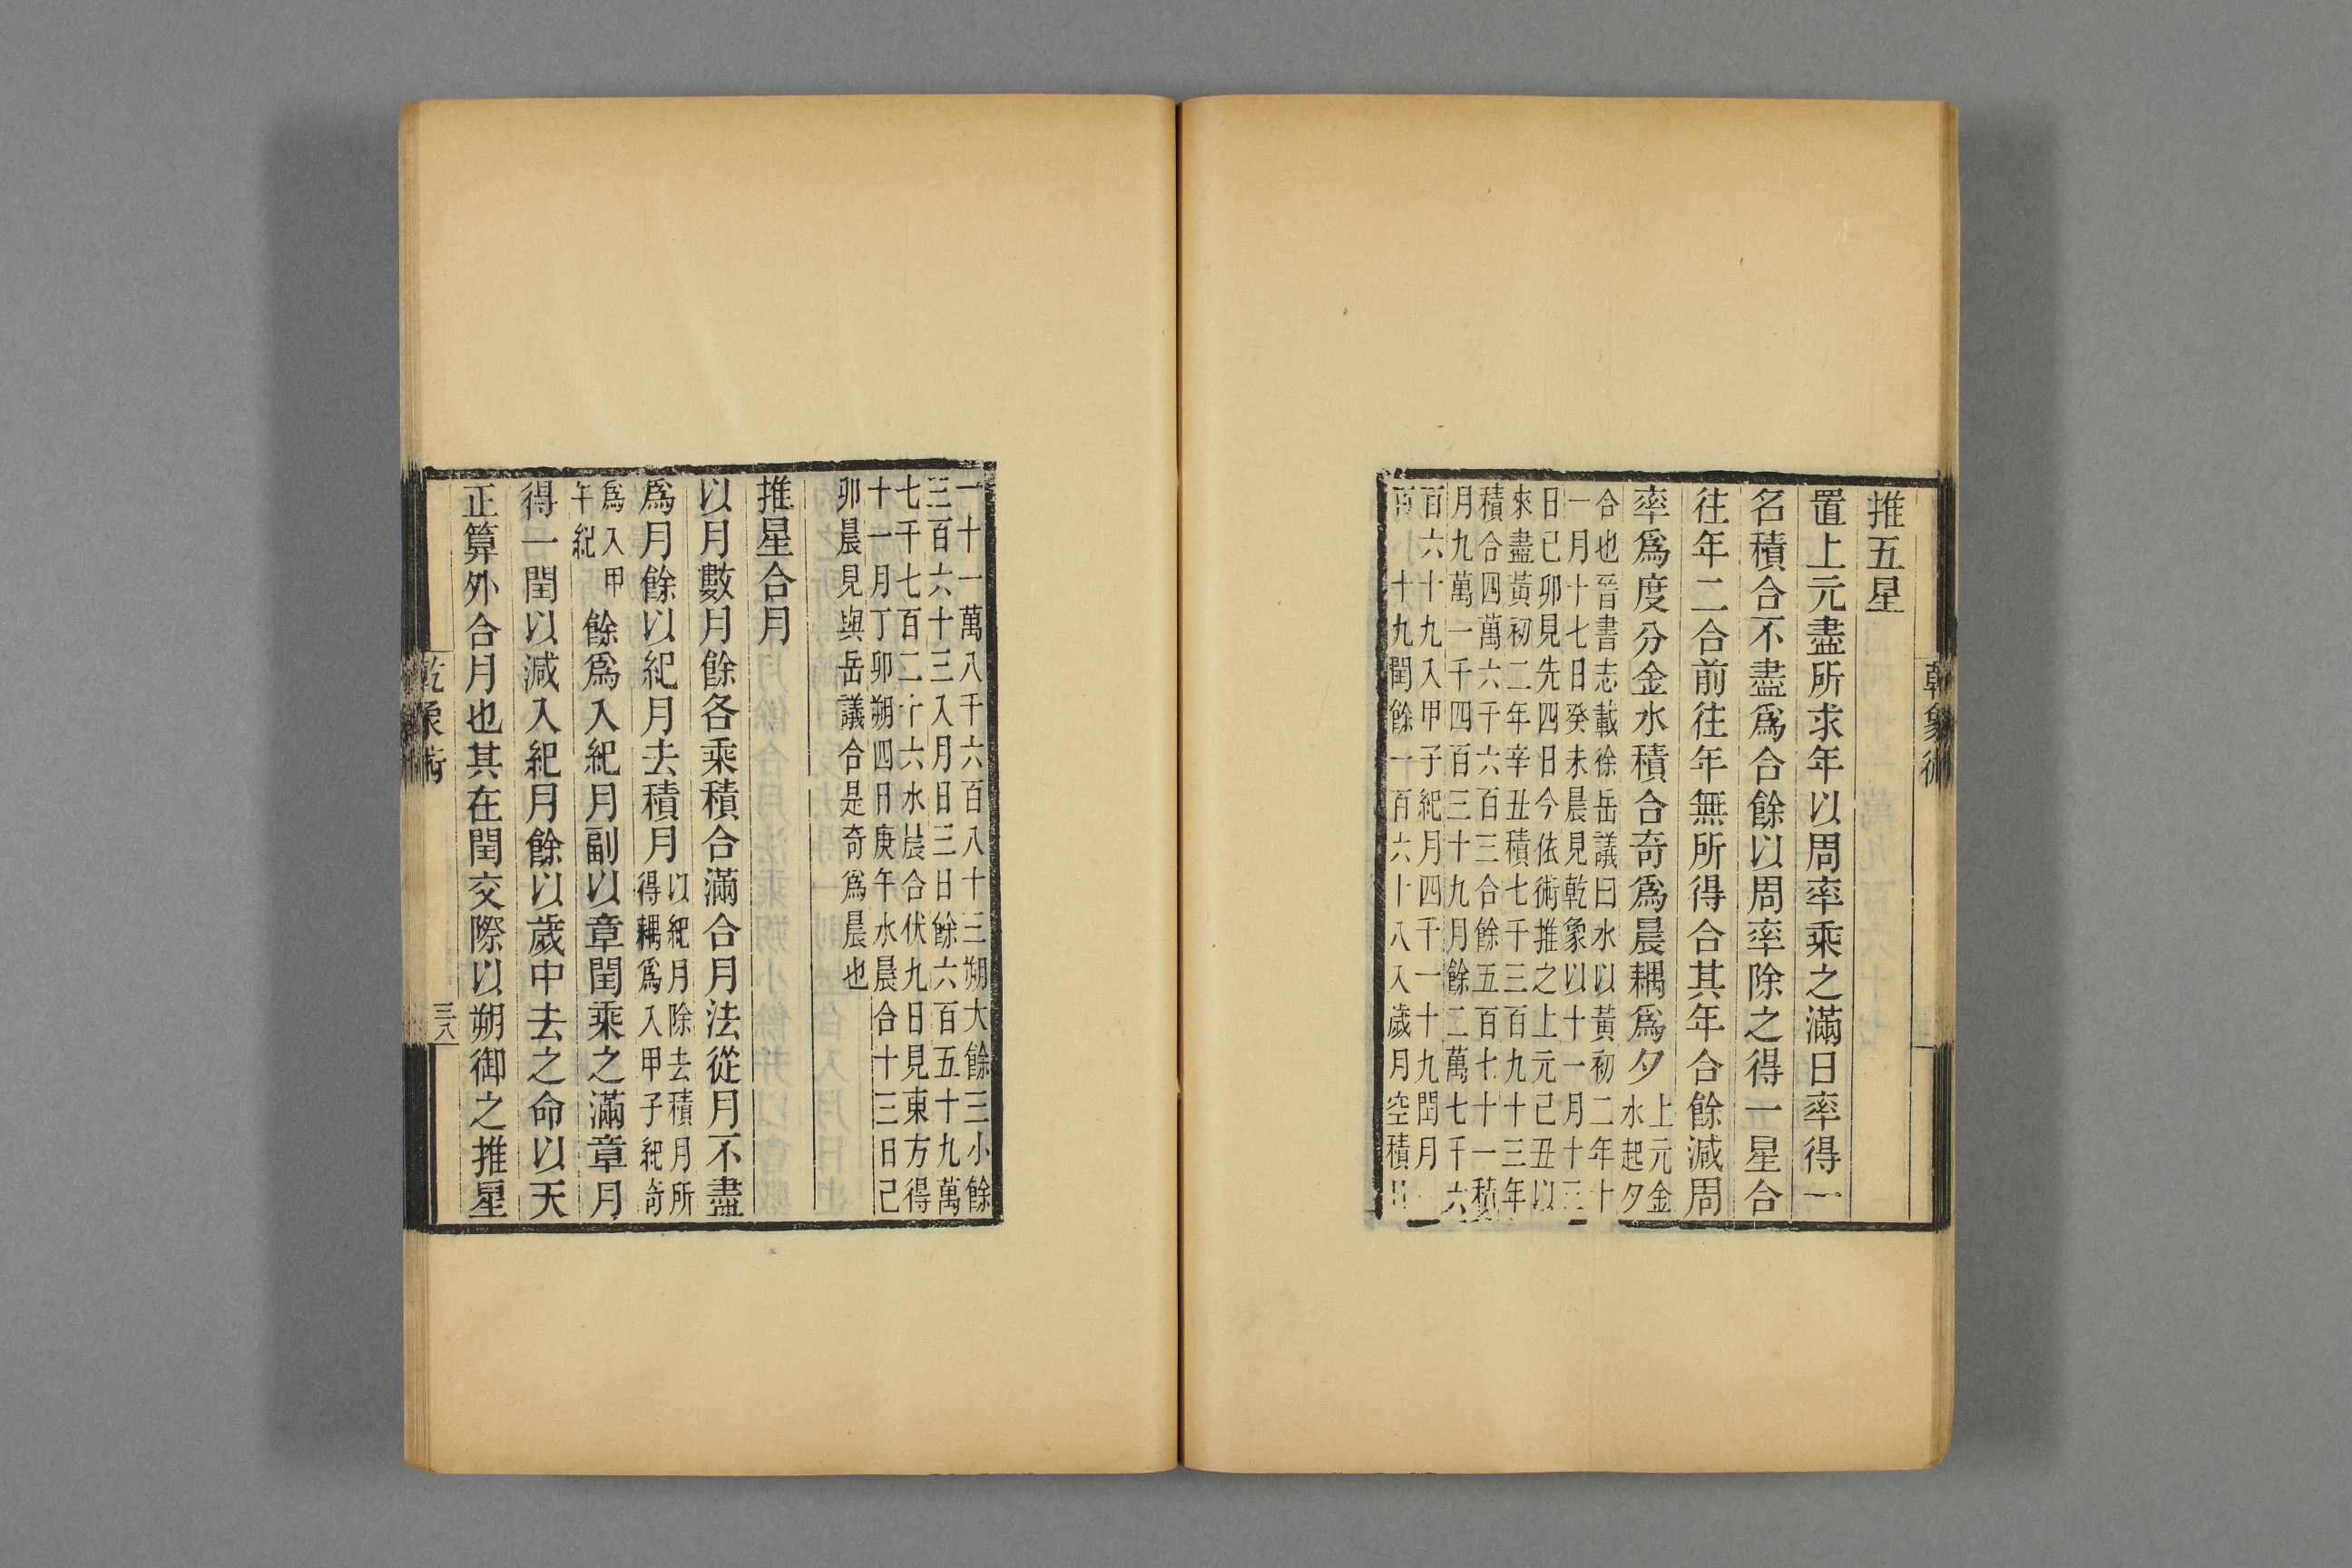 乾象術
推五星
置上元盡所求年以周率乘之滿日率得一
名積合不盡爲合餘以周率除之得一星合
往年二合前往年無所得合其年合餘減周
率爲度分金水積合奇爲晨耦爲夕
上元金
水起夕
合也晉書志載徐岳議曰水以黃初二年十
一月十七日癸未晨見乾象以十一月十三
日己卯見先四日今依術推之上元己丑以
來盡黃初二年辛丑積七千三百九十三年
積合四萬六千六百三合餘五百七十一積
月九萬一千四百三十九月餘二萬七千六
百六十九入甲子紀月四千一十九閏月
十九閏餘一百六十八入歲月空積
一十一萬八千六百八十三朔大餘三小餘
三百六十三入月日三日餘六百五十九萬
七千七百二十六水晨合伏九日見東方得
十一月丁卯朔四日庚午水晨合十三日己
卯晨見與岳議合是奇爲晨也
推星合月
以月數月餘各乘積合滿合月法從月不盡
爲月餘以紀月去積月
以紀月除去積月所
得耦爲入甲子紀奇
爲入甲
午紀
餘爲入紀月副以章閏乘之滿章月
得一閏以減入紀月餘以歲中去之命以天
正算外合月也其在閏交際以朔御之推星
乾象術
三八